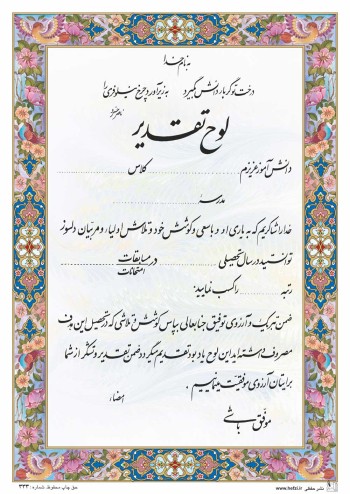 به نام خدا
درخت تو گر بار دانش بگیرد به زیر آوری چرخ نیلوفری را
ناصر خسرو
لوح تقدیر
دانش آموز عزیزم کلاس
مدرسه
خدا را شاکریم که به یاری او و با سعی و کوشش خود و تلاش اولیاء و مربیان دلسوز
توانستید در سال تحصیلی در مسابقات
امتحانات
رتبه را کسب نمایید:
ضمن تبریک و آرزوی توفیق جنابعالی بپاس کوشش و تلاشی که در تحصیل این هدف
مصروف داشته‌اید این لوح یادبود تقدیم میگردد و ضمن تقدیر و تشکر از شما
برایتان آرزوی موفقیت مینماییم.
امضاء
موفق باشی
حق چاپ محفوظ. شماره: ۳۳۳
نشر حافظی www.hafzi.ir